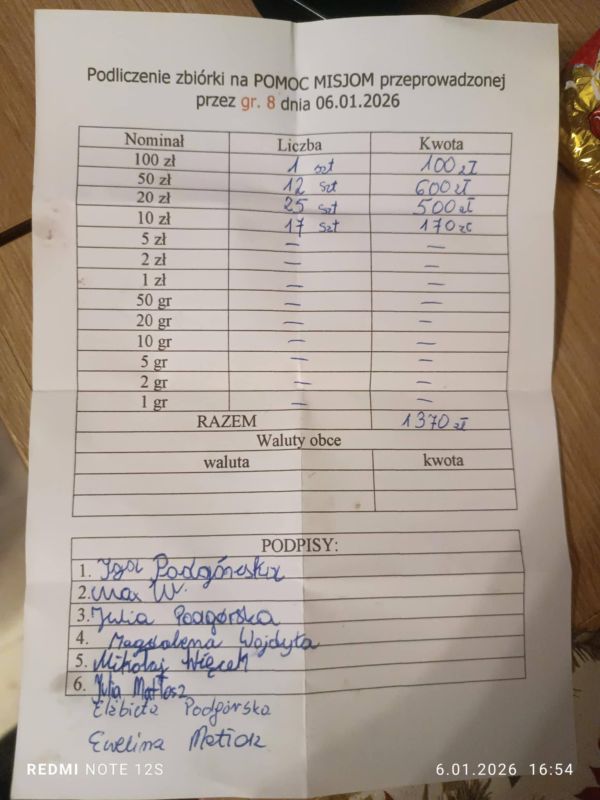 Podliczenie zbiórki na POMOC MISJOM przeprowadzonej
przez gr. 8 dnia 06.01.2026
Nominał Liczba Kwota
100 zł 1 szt 100 zł
50 zł 12 szt 600 zł
20 zł 25 szt 500 zł
10 zł 17 szt 170 zł
5 zł — —
2 zł — —
1 zł — —
50 gr — —
20 gr — —
10 gr — —
5 gr — —
2 gr — —
1 gr — —
RAZEM 1370 zł
Waluty obce
waluta kwota
PODPISY:
1. Igor Podgórski
2. Max W.
3. Julia Podgórska
4. Magdalena Wojdyła
5. Mikołaj Więcek
6. Julia Matłosz
Elżbieta Podgórska
Ewelina
REDMI NOTE 12S 6.01.2026 16:54